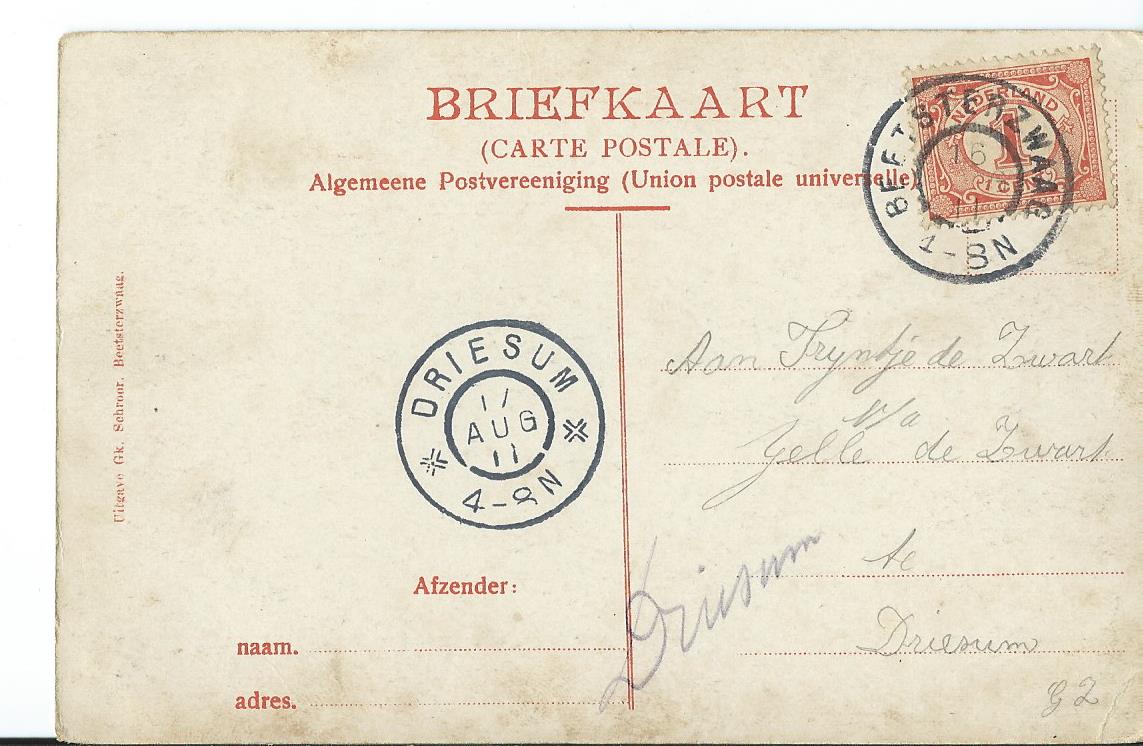 BRIEFKAART
(CARTE POSTALE).
Algemeene Postvereeniging (Union postale universelle)
NEDERLAND
1
1 CENT
BEETSTERZWAAG
16
4-8N
Uitgave Gk. Schroor. Beetsterzwaag.
DRIESUM
17
AUG
11
4-8N
Aan Tryntje de Zwart
p/a
Jelle de Zwart
te
Driesum
Driesum
Afzender:
naam.
adres.